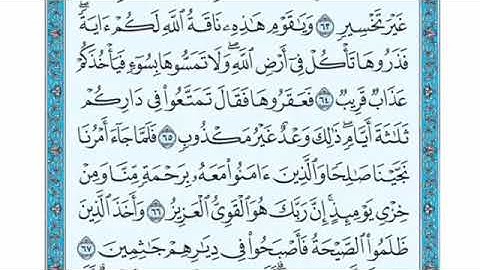 غَيْرَ تَخْسِيرٍ ۝٦٣ وَيَٰقَوْمِ هَٰذِهِۦ نَاقَةُ ٱللَّهِ لَكُمْ ءَايَةً ۖ
فَذَرُوهَا تَأْكُلْ فِىٓ أَرْضِ ٱللَّهِ ۖ وَلَا تَمَسُّوهَا بِسُوٓءٍ فَيَأْخُذَكُمْ
عَذَابٌ قَرِيبٌ ۝٦٤ فَعَقَرُوهَا فَقَالَ تَمَتَّعُوا۟ فِى دَارِكُمْ
ثَلَٰثَةَ أَيَّامٍ ۖ ذَٰلِكَ وَعْدٌ غَيْرُ مَكْذُوبٍ ۝٦٥ فَلَمَّا جَآءَ أَمْرُنَا
نَجَّيْنَا صَٰلِحًا وَٱلَّذِينَ ءَامَنُوا۟ مَعَهُۥ بِرَحْمَةٍ مِّنَّا وَمِنْ
خِزْىِ يَوْمِئِذٍ ۗ إِنَّ رَبَّكَ هُوَ ٱلْقَوِىُّ ٱلْعَزِيزُ ۝٦٦ وَأَخَذَ ٱلَّذِينَ
ظَلَمُوا۟ ٱلصَّيْحَةُ فَأَصْبَحُوا۟ فِى دِيَٰرِهِمْ جَٰثِمِينَ ۝٦٧